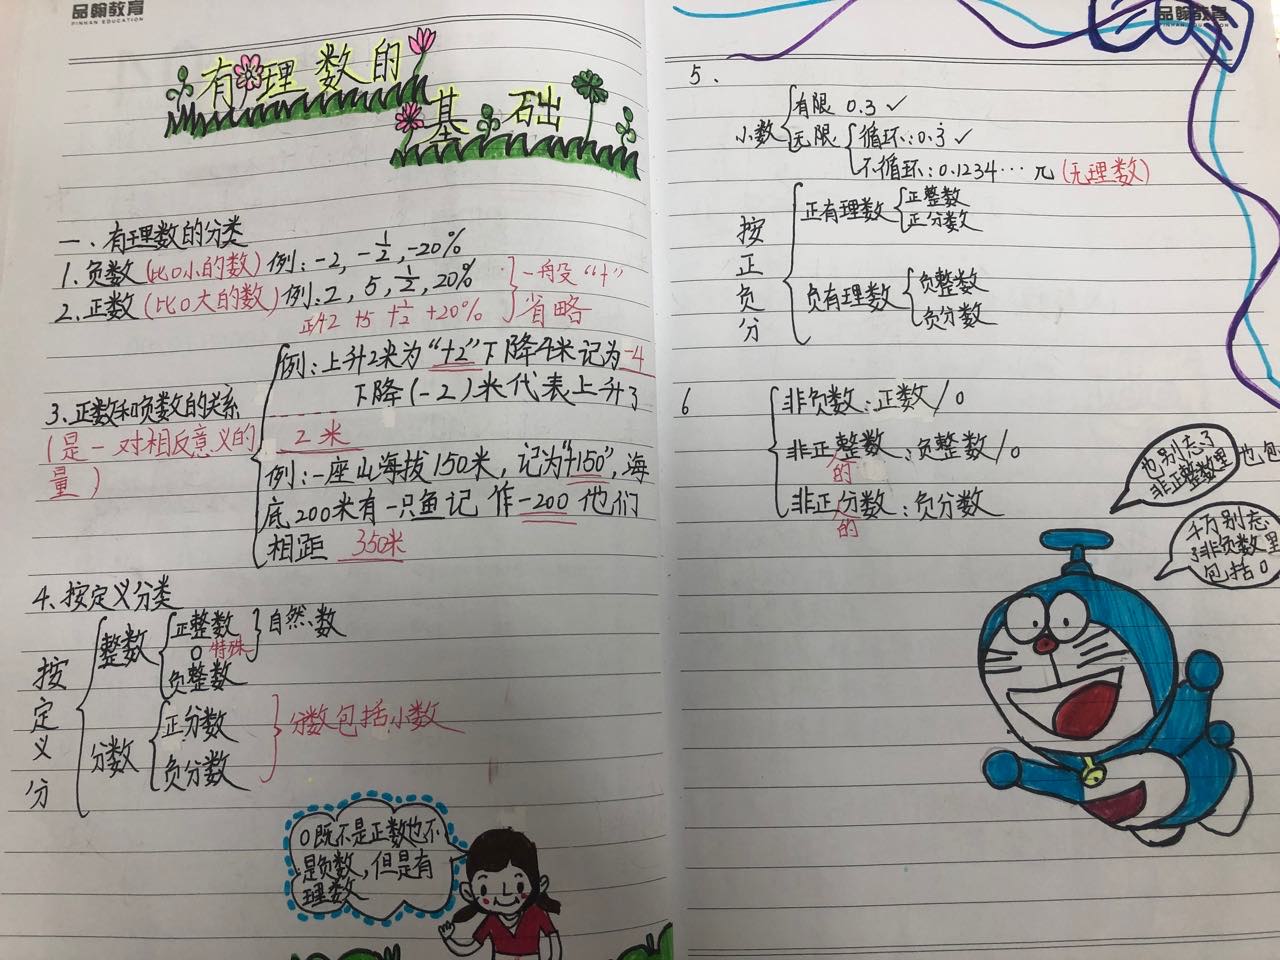 品翰教育
PINHAN EDUCATION
有理数的
基础
一、有理数的分类
1.负数(比0小的数)例:-2,-1/2,-20%
2.正数(比0大的数)例:2,5,1/2,20%
+2 +5 +1/2 +20%
一般没“+”
省略
3.正数和负数的关系
(是一对相反意义的
量)
例:上升2米为“+2”下降4米记为-4
下降(-2)米代表上升了
2米
例:一座山海拔150米,记为“+150”,海
底200米有一只鱼记作-200他们
相距 350米
4、按定义分类
按定义分
整数
正整数
0 特殊
负整数
自然数
分数
正分数
负分数
分数包括小数
0既不是正数也不
是负数,但是有
理数
品翰教育
PINHAN EDUCATION
5、
小数
有限 0.3 ✓
无限
循环:0.3̇ ✓
不循环:0.1234… π(无理数)
按正负分
正有理数
正整数
正分数
负有理数
负整数
负分数
6
非负数:正数/0
非正整数:负整数/0
的
非正分数:负分数
的
也别忘了
非正整数里也包
千万别忘
了非负数里
包括0